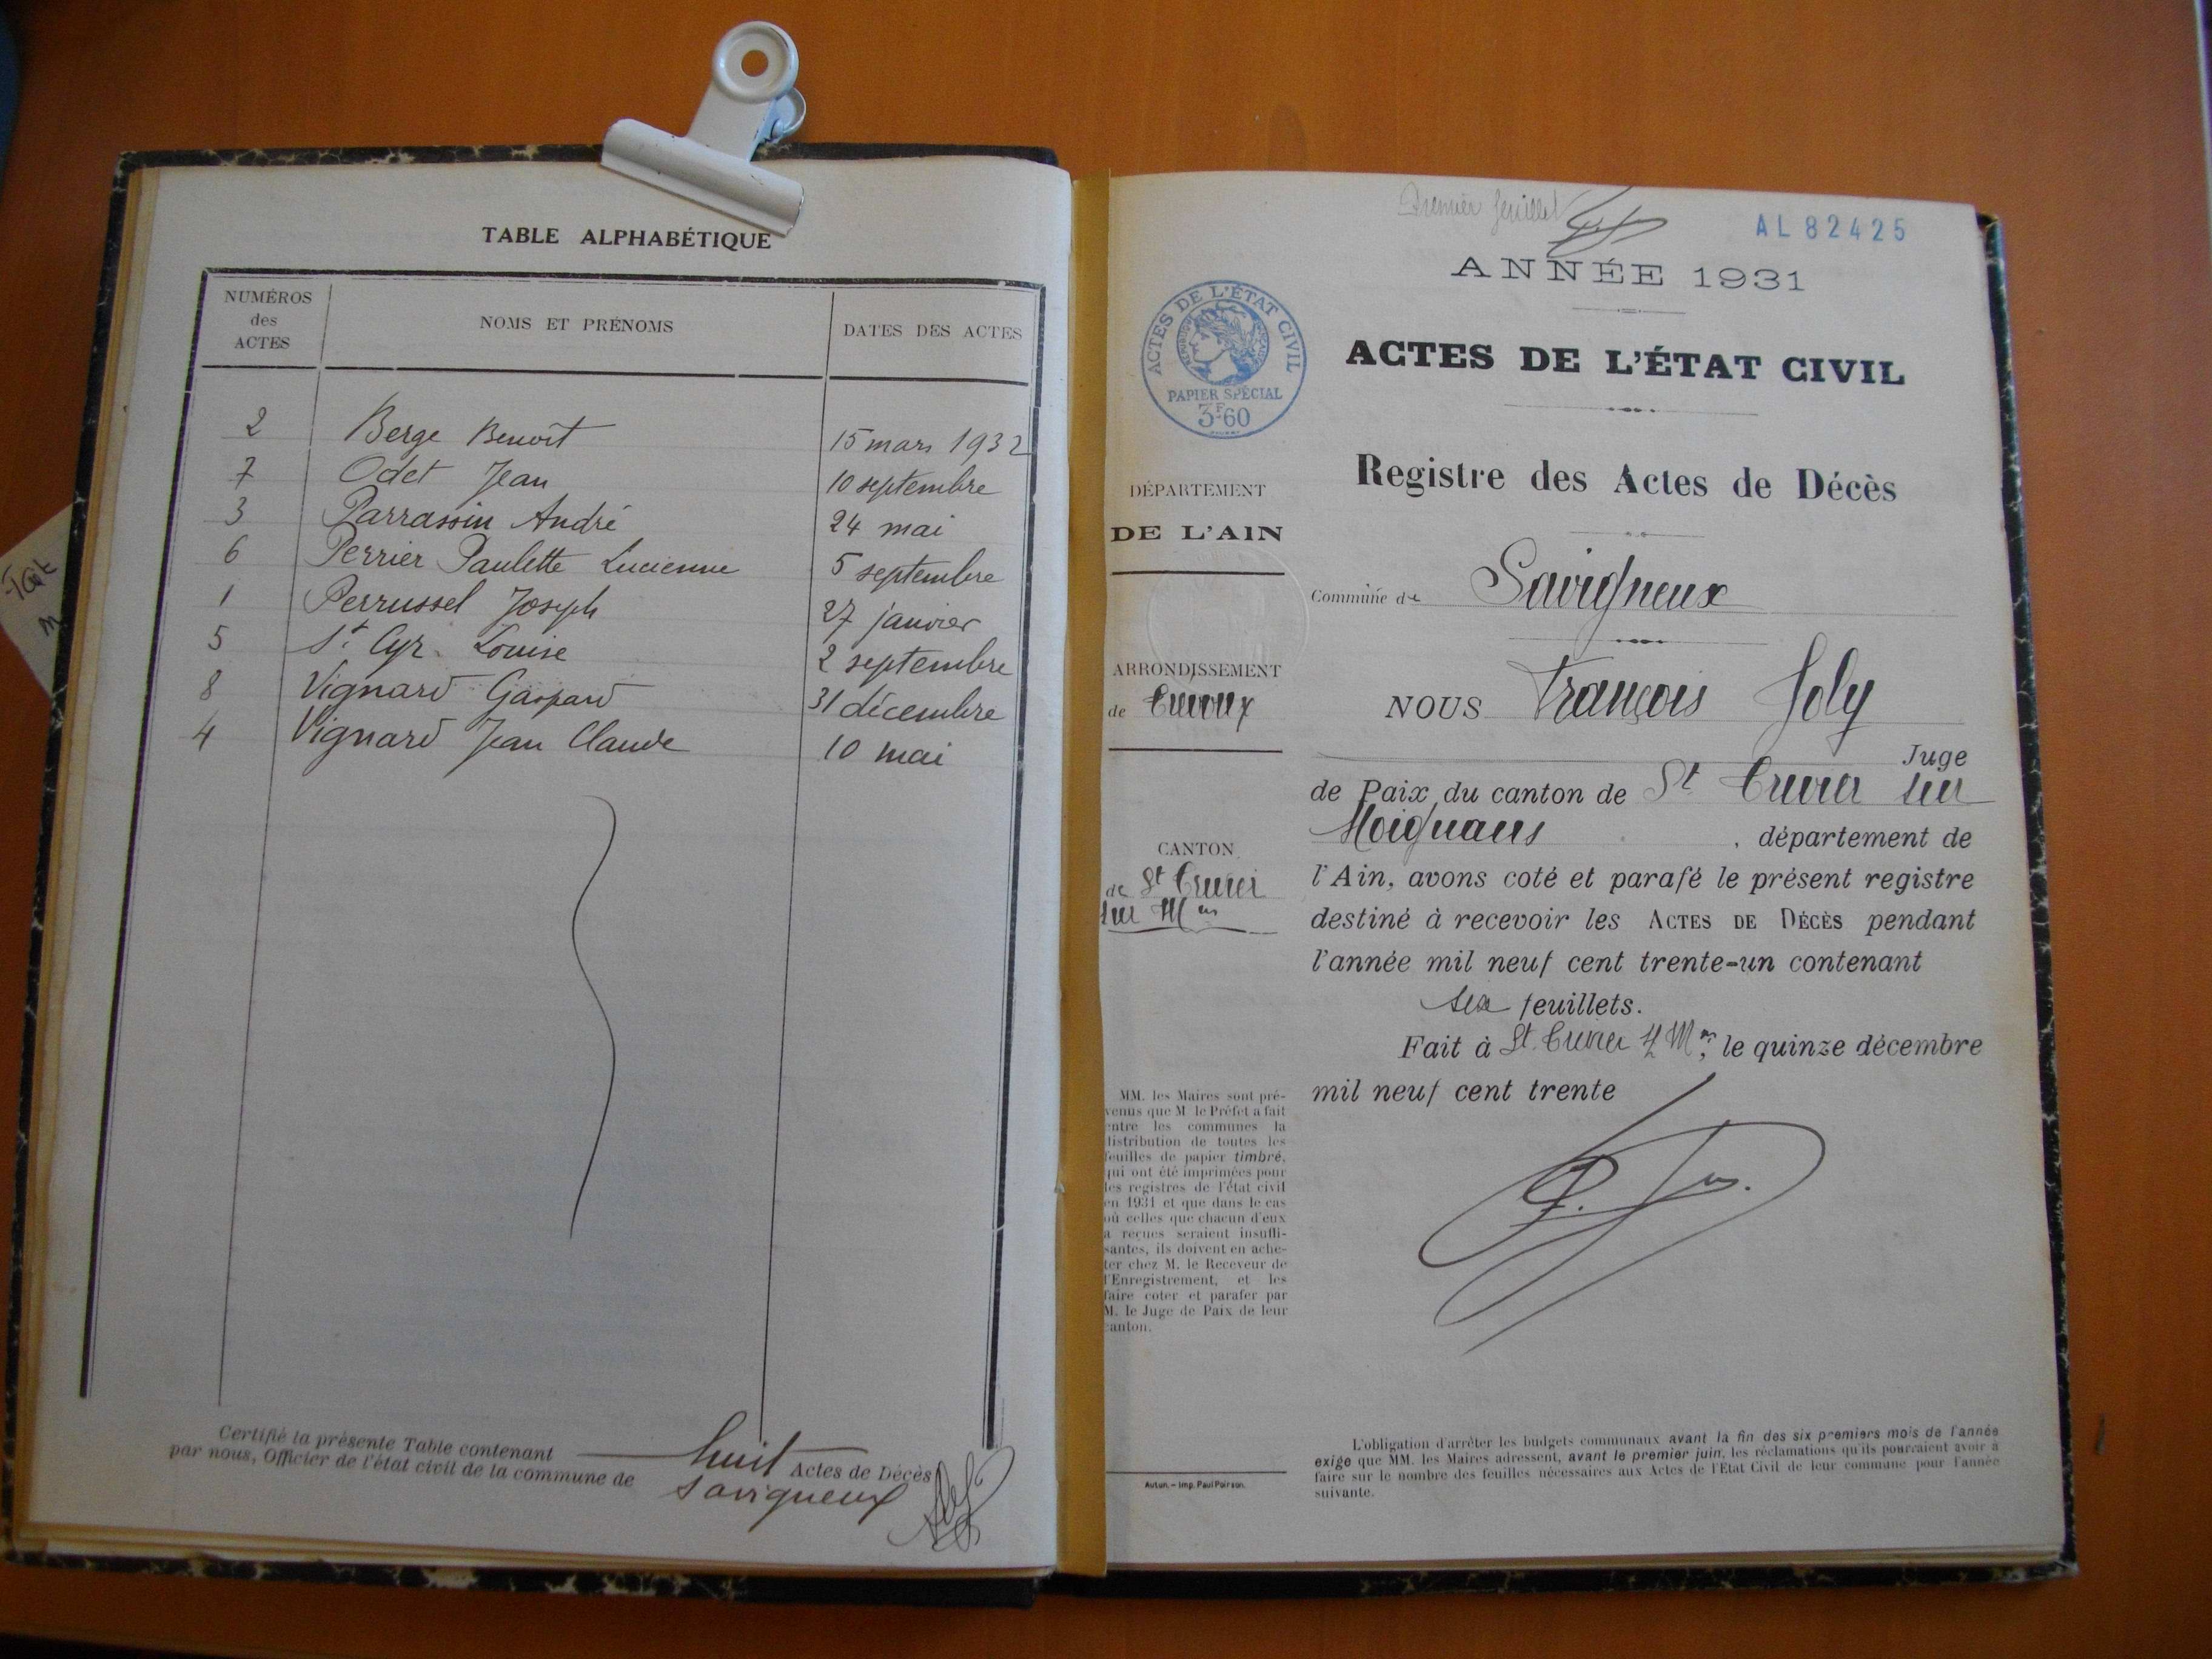 TABLE ALPHABÉTIQUE
NUMÉROS
des
ACTES
NOMS ET PRÉNOMS
DATES DES ACTES
2 Berge Benoît 15 mars 1932
7 Odet Jean 10 septembre
3 Parrassin André 24 mai
6 Perrier Paulette Lucienne 5 septembre
1 Perrussel Joseph 27 janvier
5 St. Cyr. Louise 2 septembre
8 Vignard Gaspard 31 décembre
4 Vignard Jean Claude 10 mai
Certifié la présente Table contenant huit Actes de Décès
par nous, Officier de l'état civil de la commune de Savigneux
Premier feuillet
AL 82425
ANNÉE 1931
ACTES DE L'ÉTAT CIVIL
RÉPUBLIQUE FRANÇAISE
PAPIER SPÉCIAL
3F60
ACTES DE L'ÉTAT CIVIL
Registre des Actes de Décès
DÉPARTEMENT
DE L'AIN
Commune de Savigneux
ARRONDISSEMENT
de Trévoux
NOUS François Joly
Juge
de Paix du canton de St Trivier sur
Moignans, département de
l'Ain, avons coté et parafé le présent registre
destiné à recevoir les ACTES DE DÉCÈS pendant
l'année mil neuf cent trente-un contenant
six feuillets.
Fait à St. Trivier s/ Mns, le quinze décembre
mil neuf cent trente
CANTON
de St Trivier
sur Mns
MM. les Maires sont pré-
venus que M le Préfet a fait
entre les communes la
distribution de toutes les
feuilles de papier timbré,
qui ont été imprimées pour
les registres de l'état civil
en 1931 et que dans le cas
où celles que chacun d'eux
a reçues seraient insuffi-
santes, ils doivent en ache-
ter chez M. le Receveur de
l'Enregistrement, et les
faire coter et parafer par
M. le Juge de Paix de leur
canton.
Autun. – Imp. Paul Poirson.
L'obligation d'arrêter les budgets communaux avant la fin des six premiers mois de l'année
exige que MM. les Maires adressent, avant le premier juin, les réclamations qu'ils pourraient avoir à
faire sur le nombre des feuilles nécessaires aux Actes de l'Etat Civil de leur commune pour l'année
suivante.